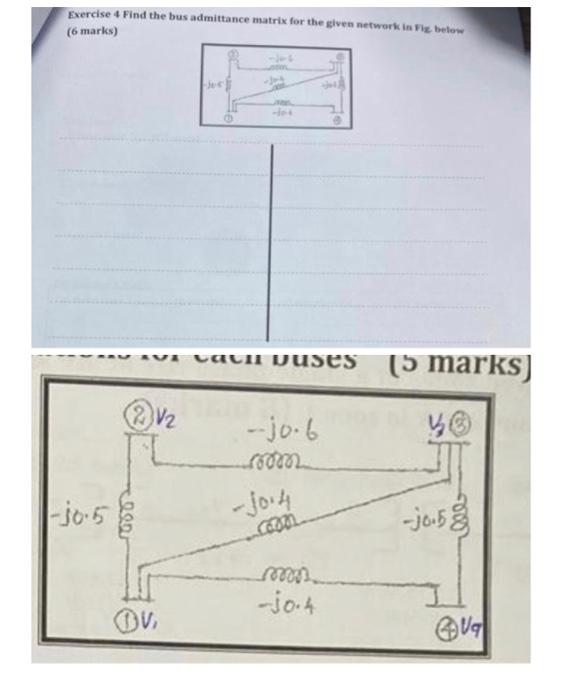 Exercise 4 Find the bus admittance matrix for the given network in Fig. below
(6 marks)
for each buses (5 marks)
② V2
-j0.6
③
-j0.5
-j0.4
-j0.5
-j0.4
① V1
④